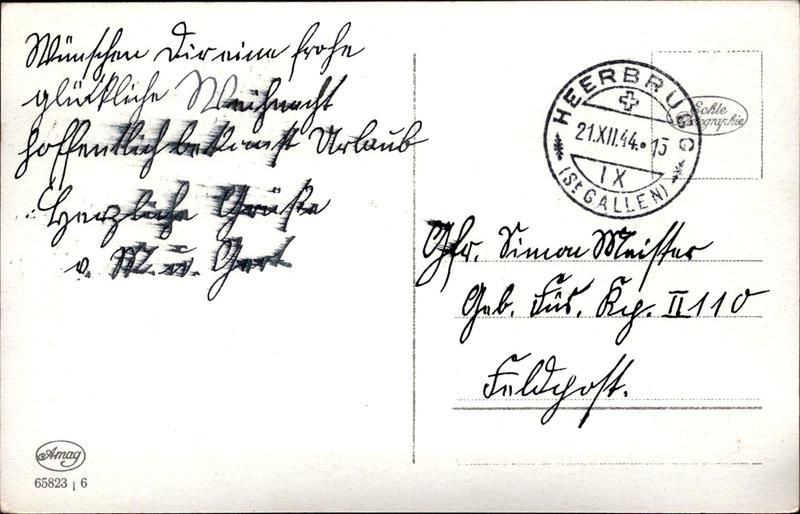 Wünschen Dir eine frohe
glückliche Weihnacht
hoffentlich bekommst Urlaub
Herzliche Grüße
v. M. u. Gert
HEERBRUGG
21.XII.44.•15
IX
(St. GALLEN)
Echte
Photographie
Gfr. Simon Meister
Geb. Füs. Kp. II 110
Feldpost.
Amag
65823 | 6